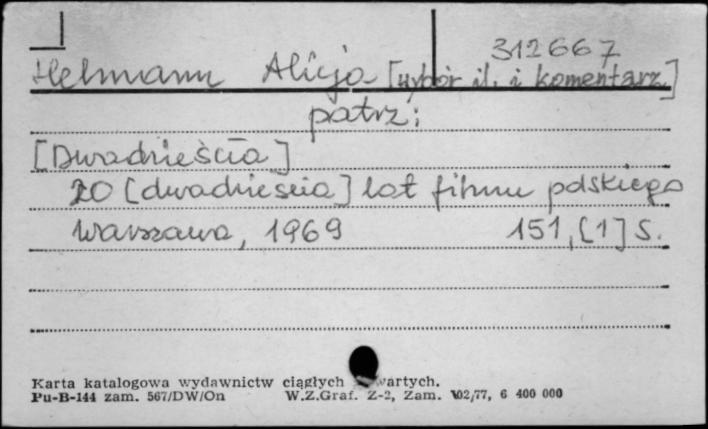 312667
Helmann Alicja [wybór il. i komentarz]
patrz:
[Dwadzieścia]
20 [dwadzieścia] lat filmu polskiego
Warszawa, 1969 151, [1] s.
Karta katalogowa wydawnictw ciągłych zwartych.
Pu-B-144 zam. 567/DW/On W.Z.Graf. Z-2, Zam. 102/77, 6 400 000